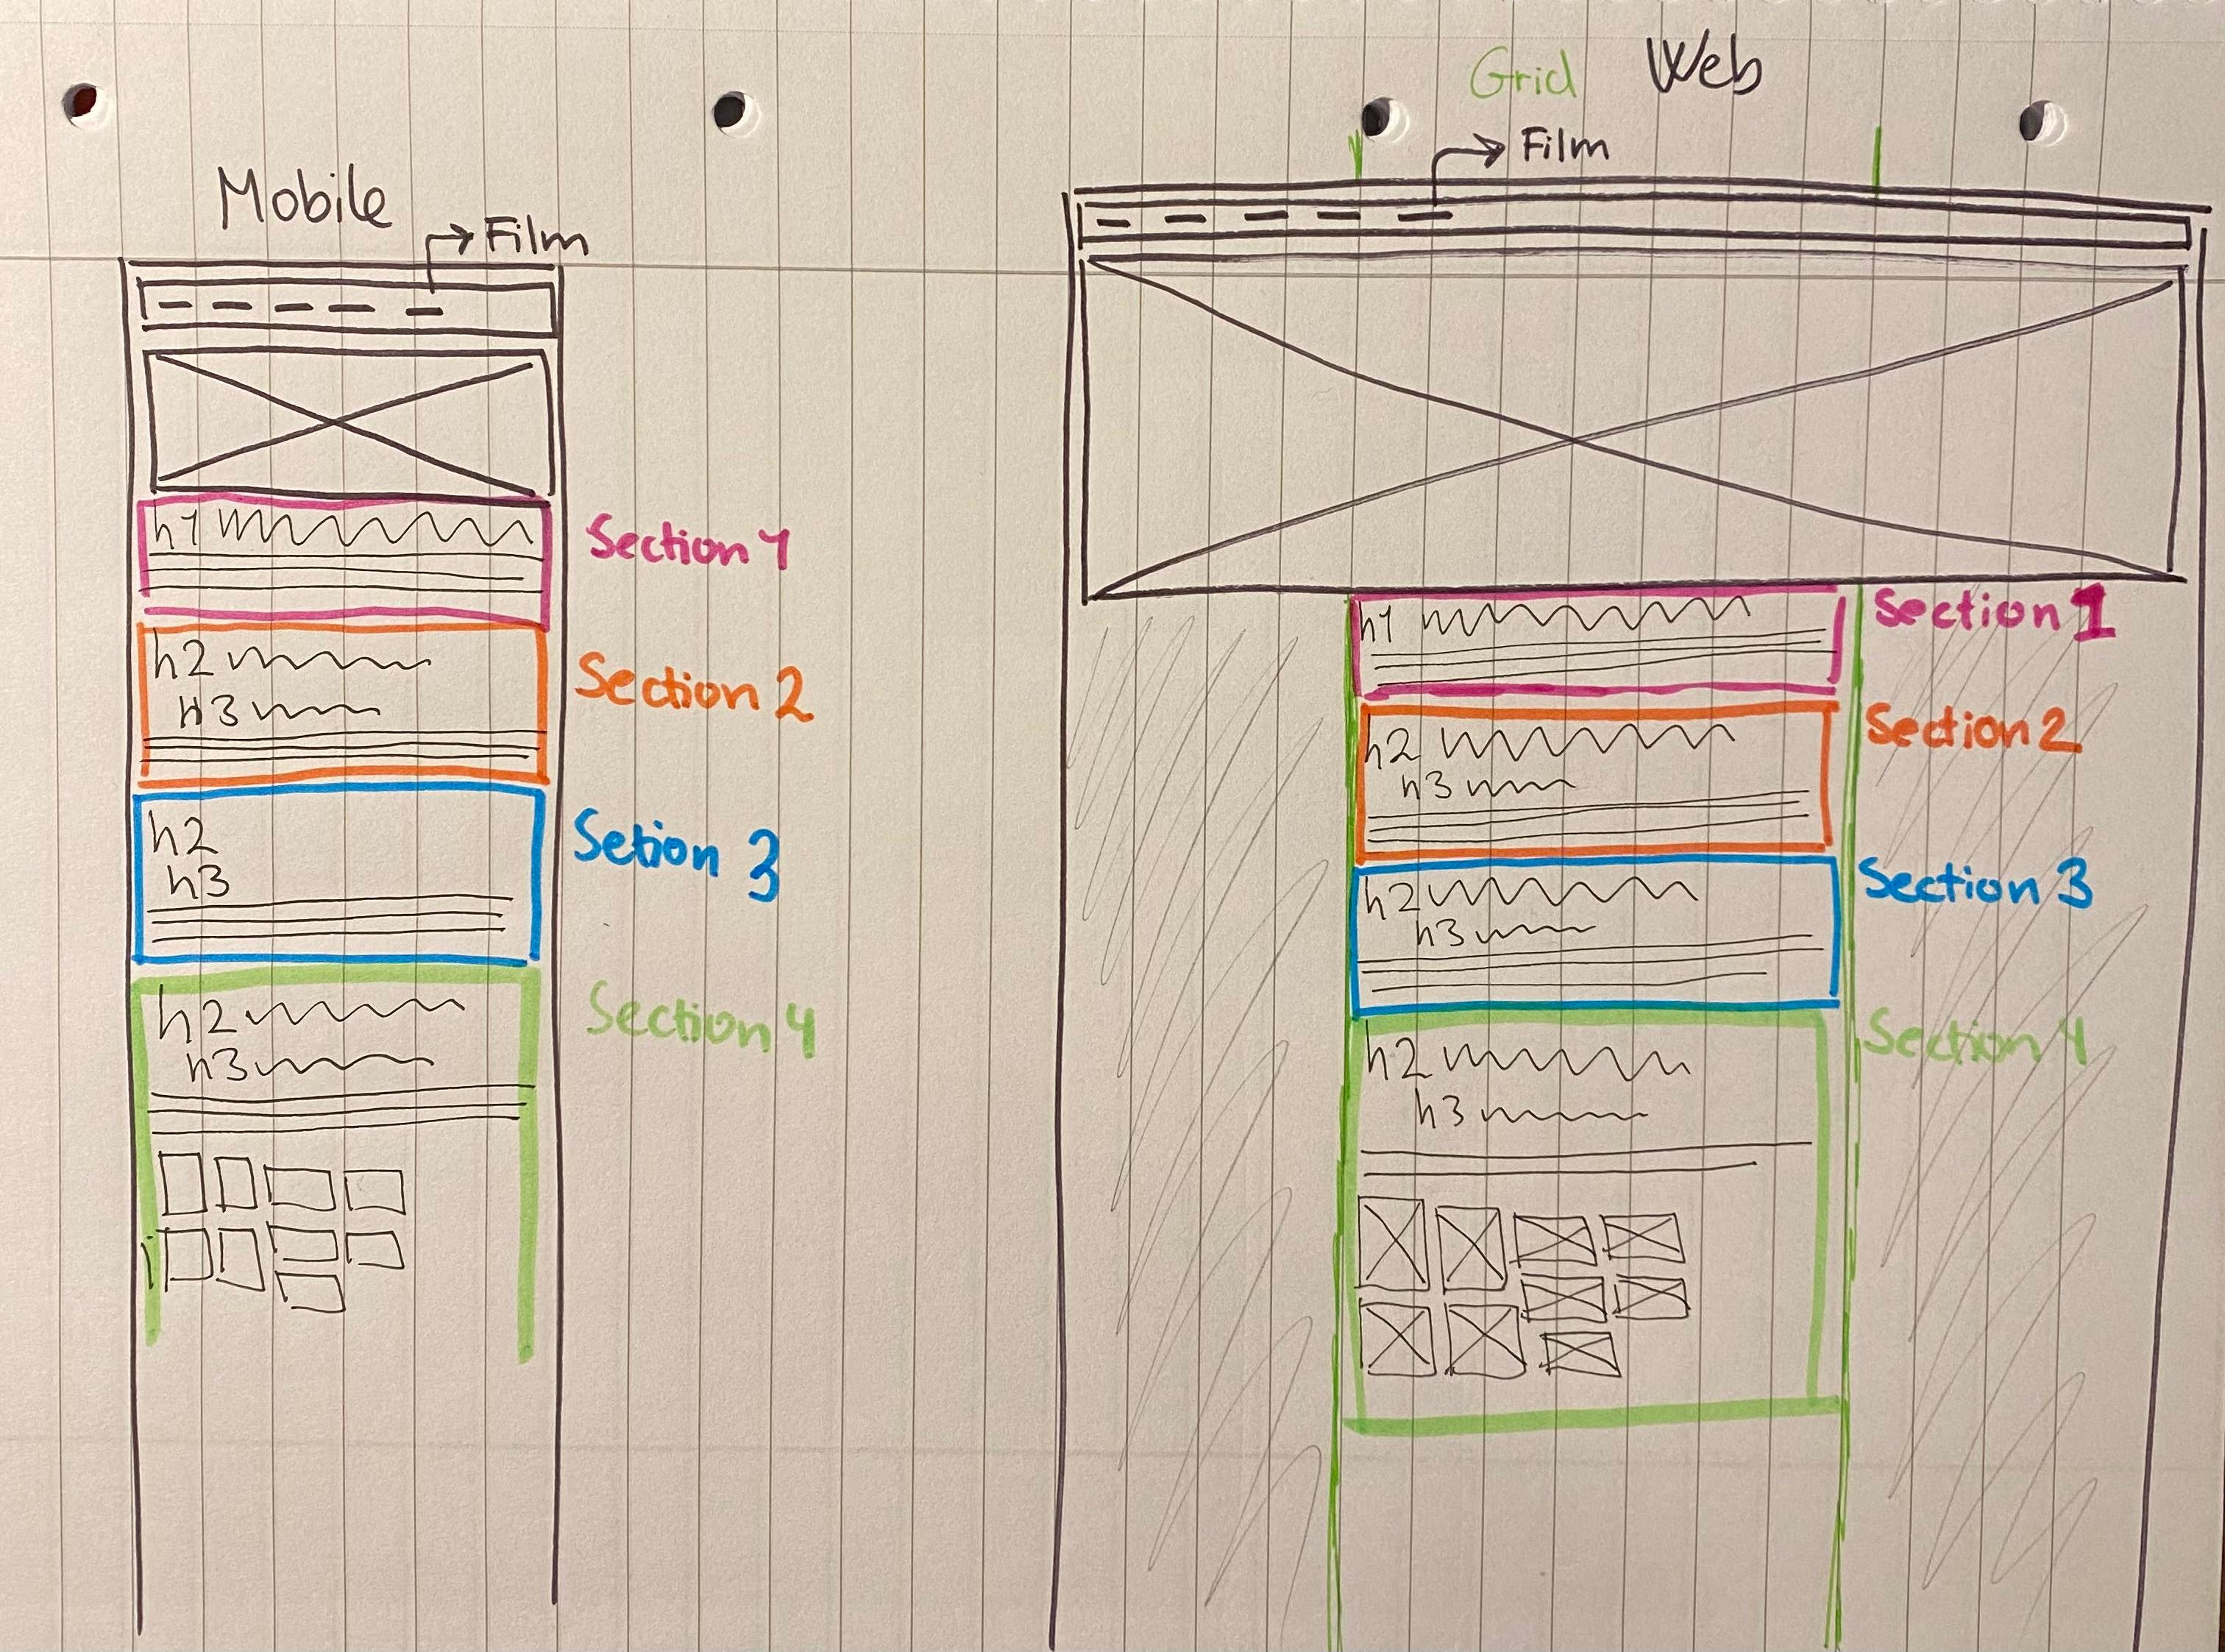 Mobile
Film
h1
Section 1
h2
H3
Section 2
h2
h3
Setion 3
h2
h3
Section 4
Grid Web
Film
h1
Section 1
h2
h3
Section 2
h2
h3
Section 3
h2
h3
Section 4